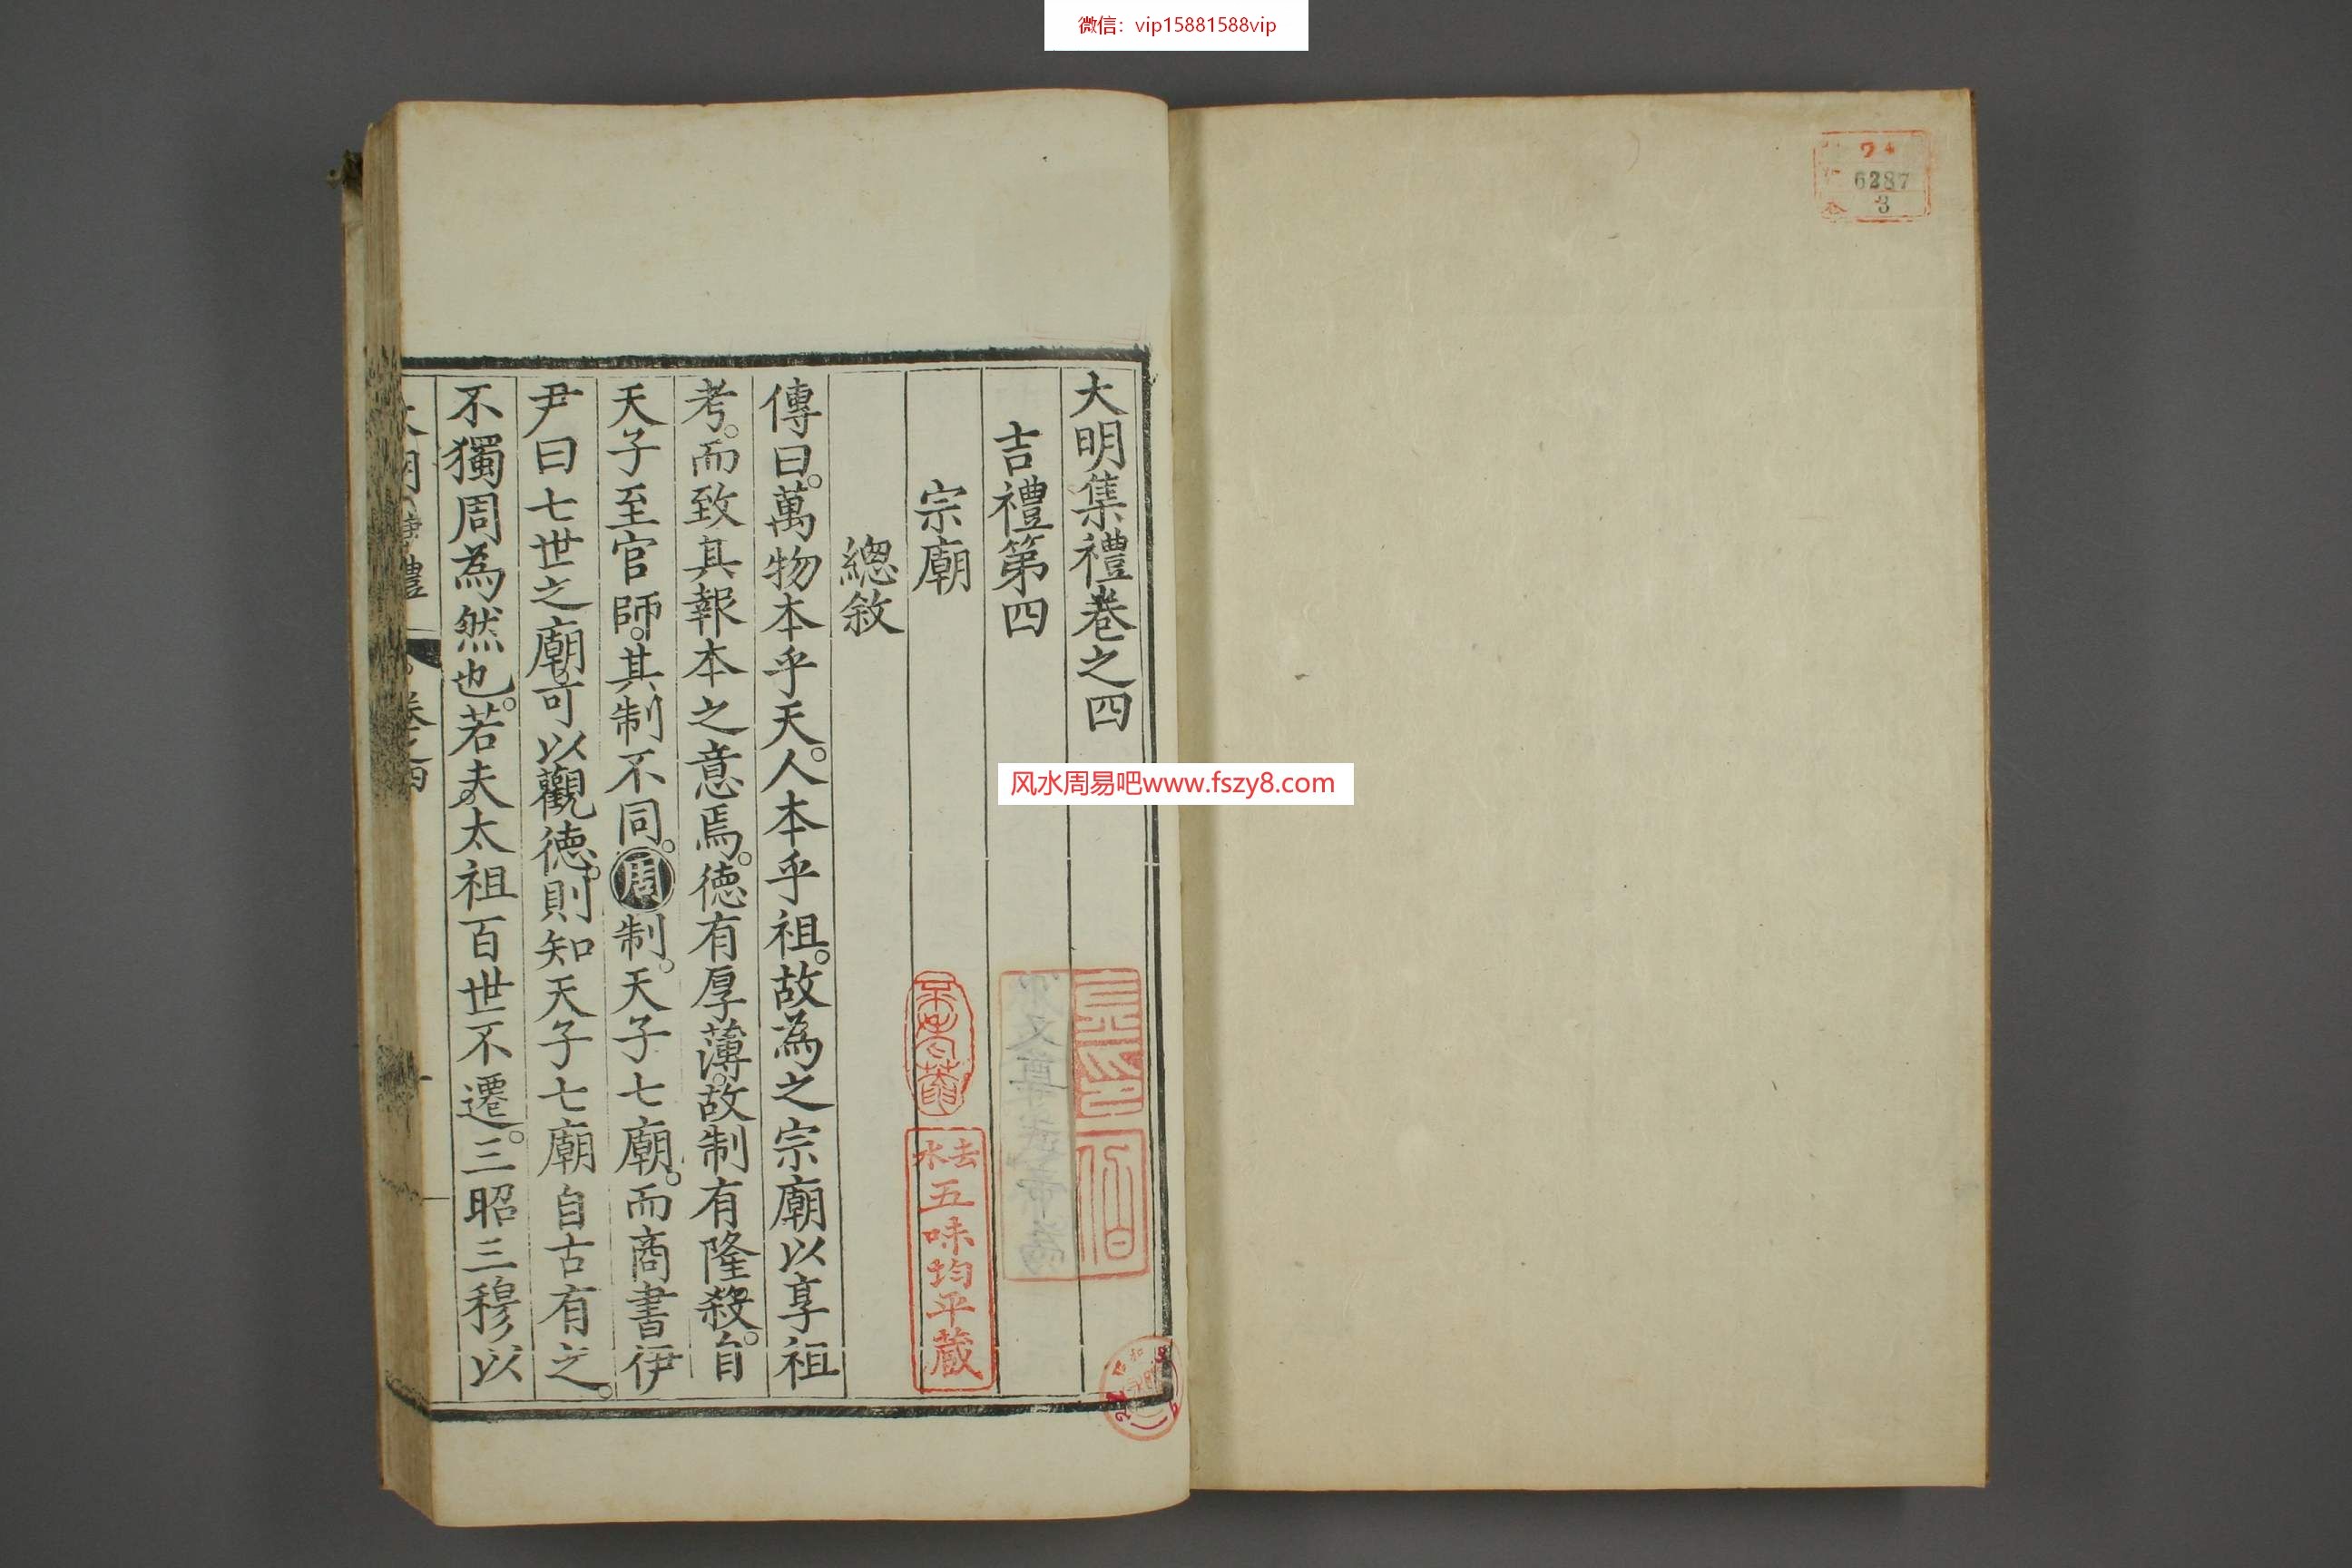 微信：vip15881588vip
24
6287
3
大明集禮卷之四
吉禮第四
宗廟
總敘
傳曰。萬物本乎天。人本乎祖。故為之宗廟以享祖
考。而致其報本之意焉。德有厚薄。故制有隆殺。自
天子至官師。其制不同。周制。天子七廟。而商書伊
尹曰七世之廟。可以觀德。則知天子七廟自古有之。
不獨周為然也。若夫。太祖百世不遷。三昭三穆以
禮
卷之四
风水周易吧www.fszy8.com
去水
五味均平蔵